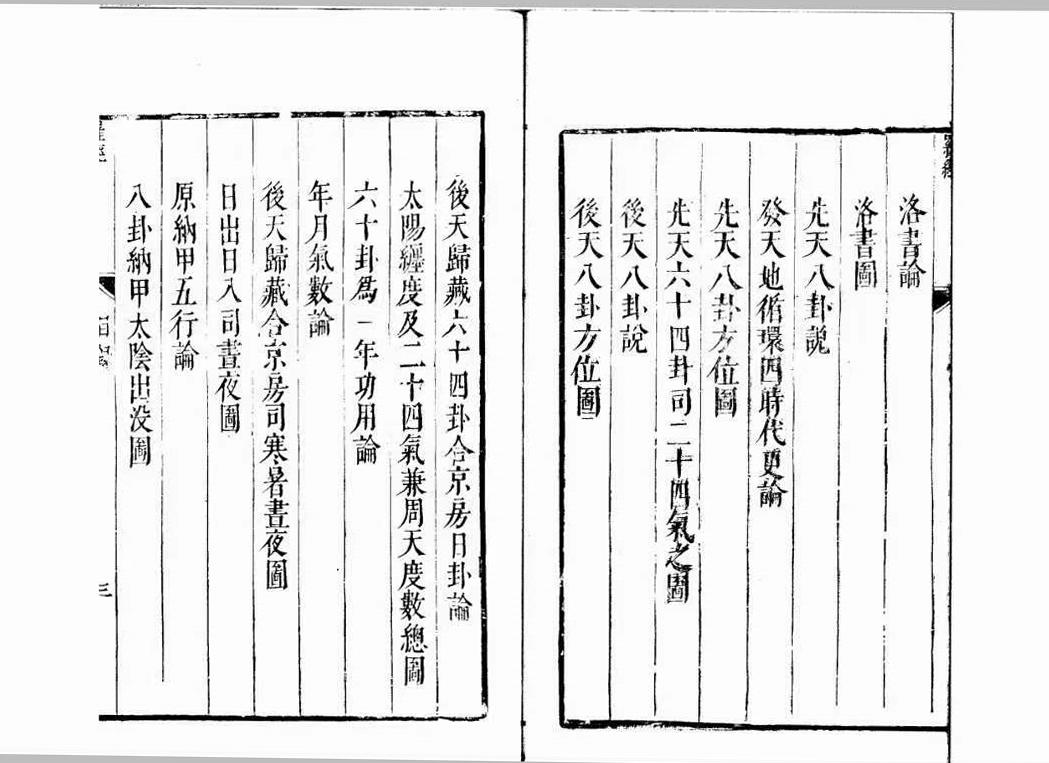 洛書論
洛書圖
先天八卦說
發天地循環四時代更論
先天八卦方位圖
先天六十四卦司二十四氣之圖
後天八卦說
後天八卦方位圖
後天歸藏六十四卦合京房日卦論
太陽纏度及二十四氣兼周天度數總圖
六十卦為一年功用論
年月氣數論
後天歸藏合京房司寒暑晝夜圖
日出日入司晝夜圖
原納甲五行論
八卦納甲太陰出没圖
三